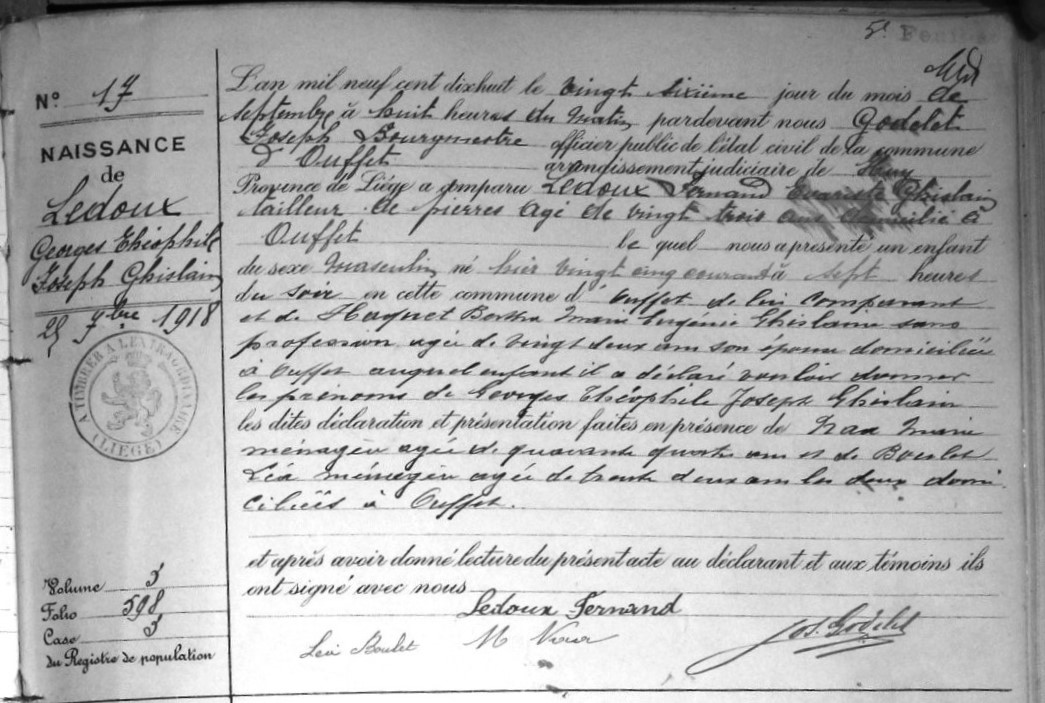 5e Feuille
N° 17
NAISSANCE
de
Ledoux
Georges Théophile
Joseph Ghislain
25 7bre 1918
A TIMBRER A L'EXTRAORDINAIRE
(LIÉGE)
Volume 5
Folio 598
Case 5
du Registre de population
L'an mil neuf cent dixhuit le vingt sixième jour du mois de
septembre à huit heures du matin, pardevant nous Godelet
Joseph Bourgmestre officier public de l'état civil de la commune
d'Ouffet arrondissement judiciaire de Huy
Province de Liége a comparu Ledoux Fernand Evariste Ghislain
tailleur de pierres agé de vingt trois ans domicilié à
Ouffet le quel nous a présenté un enfant
du sexe masculin, né hier vingt cinq courant à sept heures
du soir en cette commune d'Ouffet de lui comparant
et de Haquet Bertha Marie Eugénie Ghislaine sans
profession agée de vingt deux ans son épouse domiciliée
à Ouffet auquel enfant il a déclaré vouloir donner
les prénoms de Georges Théophile Joseph Ghislain
les dites déclaration et présentation faites en présence de Marie
ménagère agée de quarante quatre ans et de Boulet
Léa ménagère agée de trente deux ans les deux domi
ciliées à Ouffet.
et après avoir donné lecture du présent acte au déclarant et aux témoins ils
ont signé avec nous
Ledoux Fernand
Léa Boulet M
Jos. Godelet